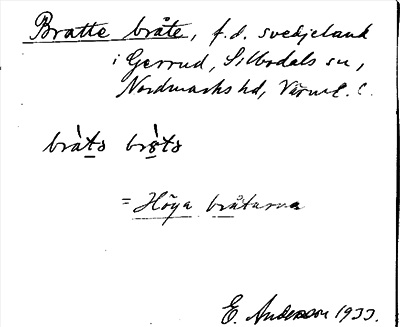 Bratte bråte, f.d. svedjeland
i Gerrud, Silbodals sn,
Nordmarks hd, Värml. l.
= Höga bråtarna
E. Anderson 1933.